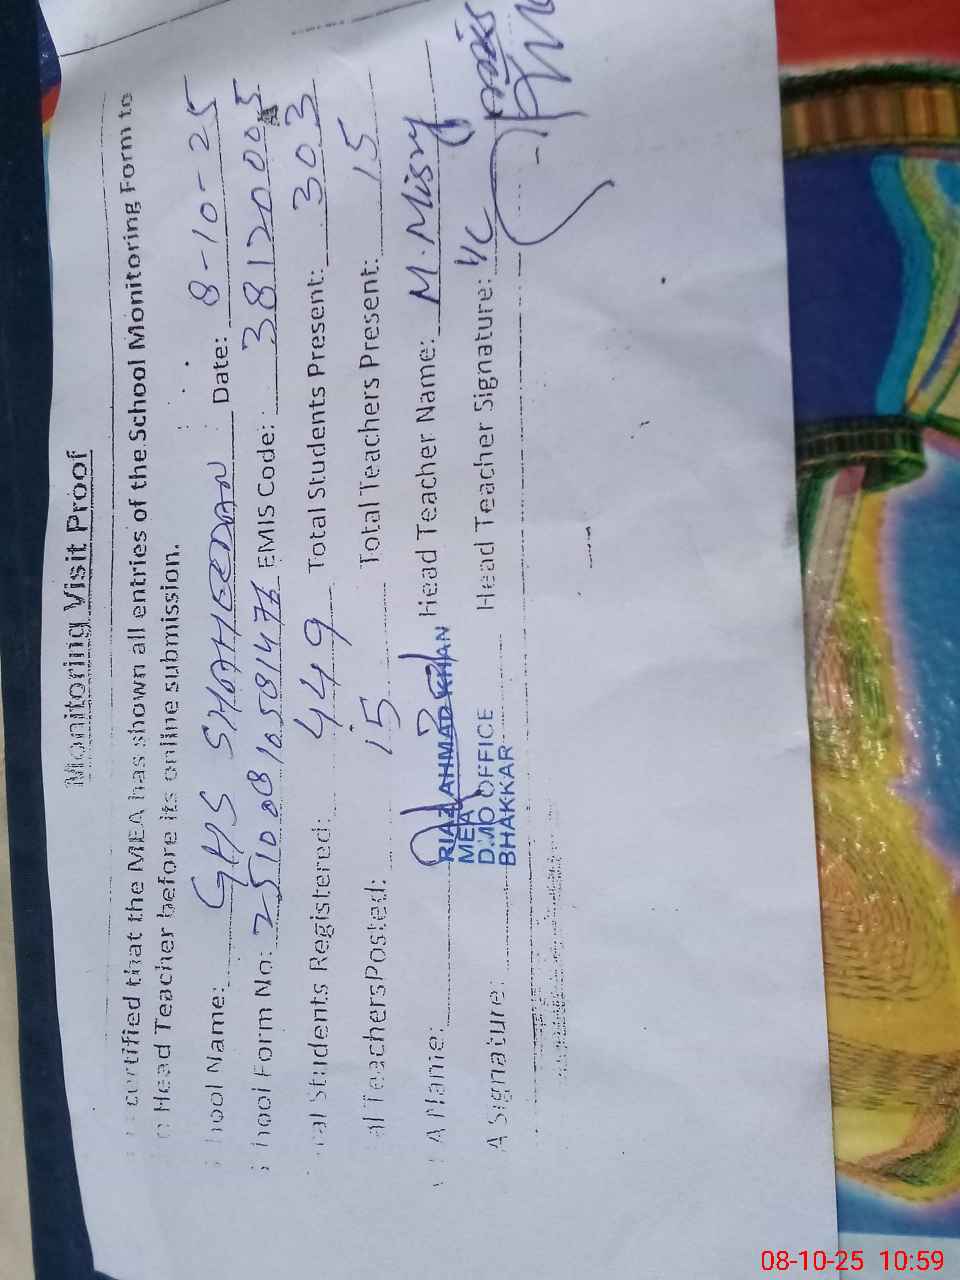 Monitoring Visit Proof
certified that the MEA has shown all entries of the School Monitoring Form to
Head Teacher before its online submission.
hool Name: GHS SHAHEEDAN Date: 8-10-25
hool Form No: EMIS Code: 38120005
al Students Registered: 449 Total Students Present: 303
al TeachersPosted: 15 Total Teachers Present: 15
A Name: RIAZ AHMAD KHAN Head Teacher Name: M.
MEA
A Signature: DMO OFFICE Head Teacher Signature: I/C
BHAKKAR
08-10-25 10:59